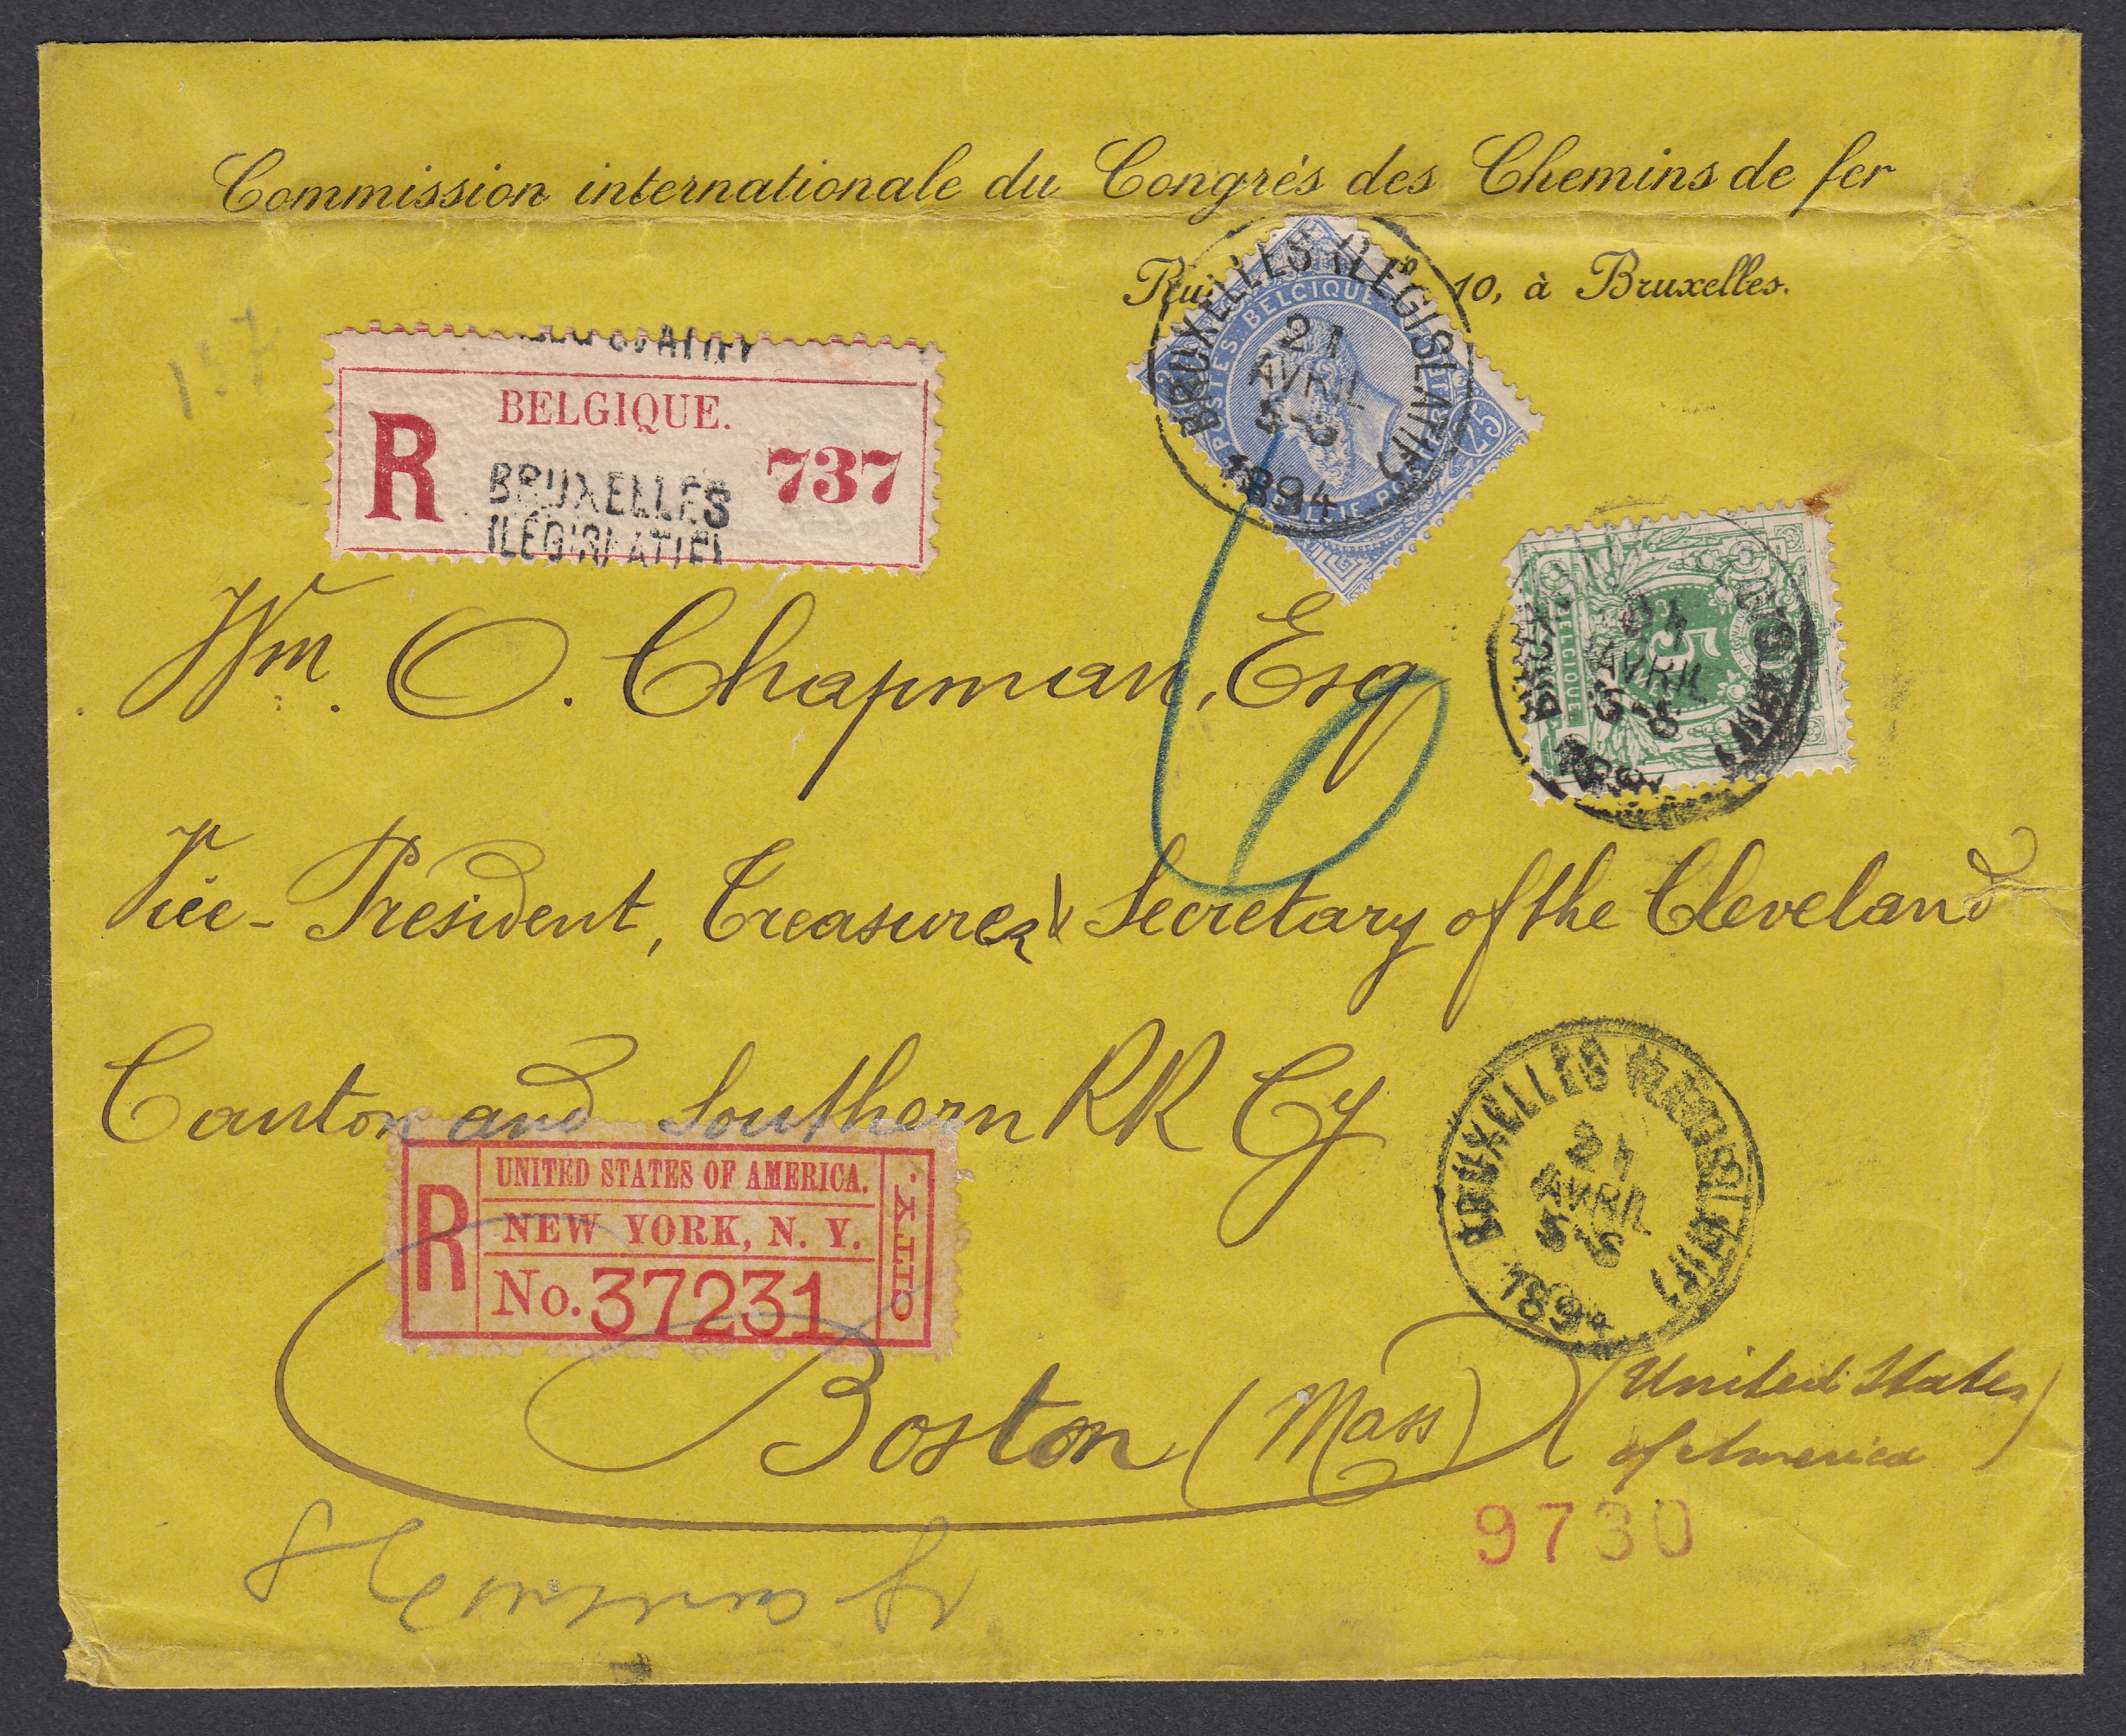 Commission internationale du Congrès des Chemins de fer
10, à Bruxelles.
BRUXELLES (LÉGISLATIF)
21
AVRIL
5-6
1894
POSTES BELGIQUE
25
BELGIQUE.
R
737
BRUXELLES
(LÉGISLATIF)
5
BELGIQUE
21
AVRIL
Wm. O. Chapman, Esq
Vice-President, Treasurer & Secretary of the Cleveland
Canton and Southern RR Cy
R
UNITED STATES OF AMERICA.
NEW YORK, N. Y.
No. 37231
CITY.
BRUXELLES (LÉGISLATIF)
21
AVRIL
5-6
1894
Boston (Mass) (United States
of America)
9730